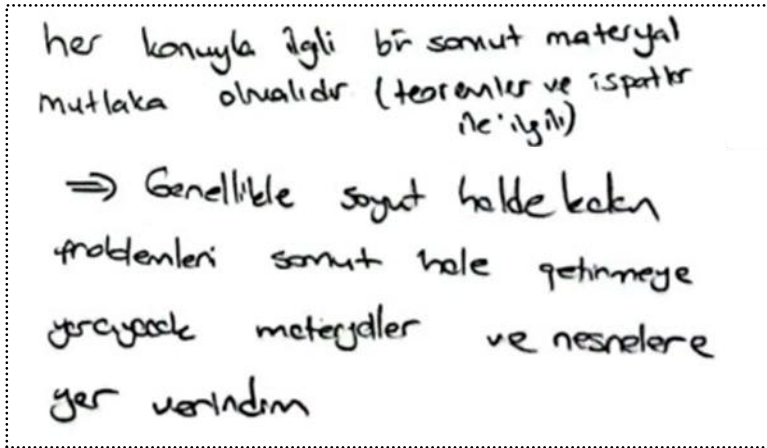 her konuyla ilgili bir somut materyal
mutlaka olmalıdır (teoremler ve ispatlar
ile ilgili)
⇒ Genellikle soyut halde kalan
problemleri somut hale getirmeye
yarayacak materyaller ve nesnelere
yer verirdim